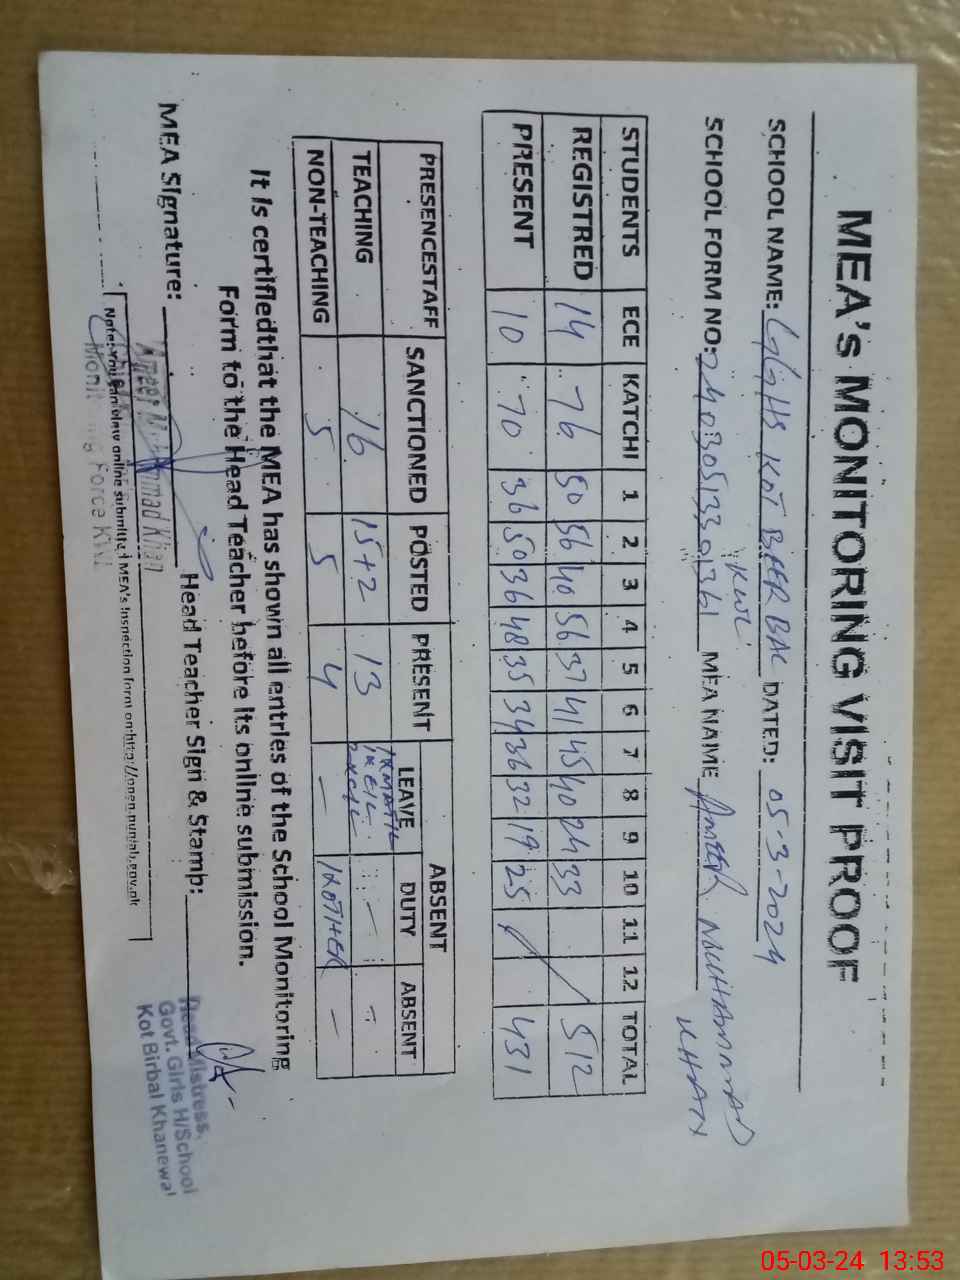 MEA's MONITORING VISIT PROOF
SCHOOL NAME: GGHS KOT BEERBAL KWL DATED: 05-3-2024
SCHOOL FORM NO: MEA NAME AMEER MUHAMMAD KHAN
STUDENTS ECE KATCHI 1 2 3 4 5 6 7 8 9 10 11 12 TOTAL
REGISTRED 14 76 50 56 40 56 37 41 45 40 24 33 512
PRESENT 10 70 36 50 36 48 35 34 36 32 19 25 431
PRESENCESTAFF SANCTIONED POSTED PRESENT ABSENT
LEAVE DUTY ABSENT
TEACHING 16 15+2 13 -
NON-TEACHING 5 5 4 - 1XOTHER -
It is certifiedthat the MEA has shown all entries of the School Monitoring
Form to the Head Teacher before its online submission.
MEA Signature: Head Teacher Sign & Stamp:
Ameer Muhammad Khan
Head Mistress,
Govt. Girls H/School
Kot Birbal Khanewal
Note: You can view online submitted MEA's Inspection form on:http://open.punjab.gov.pk
Monitoring Force KWL
05-03-24 13:53